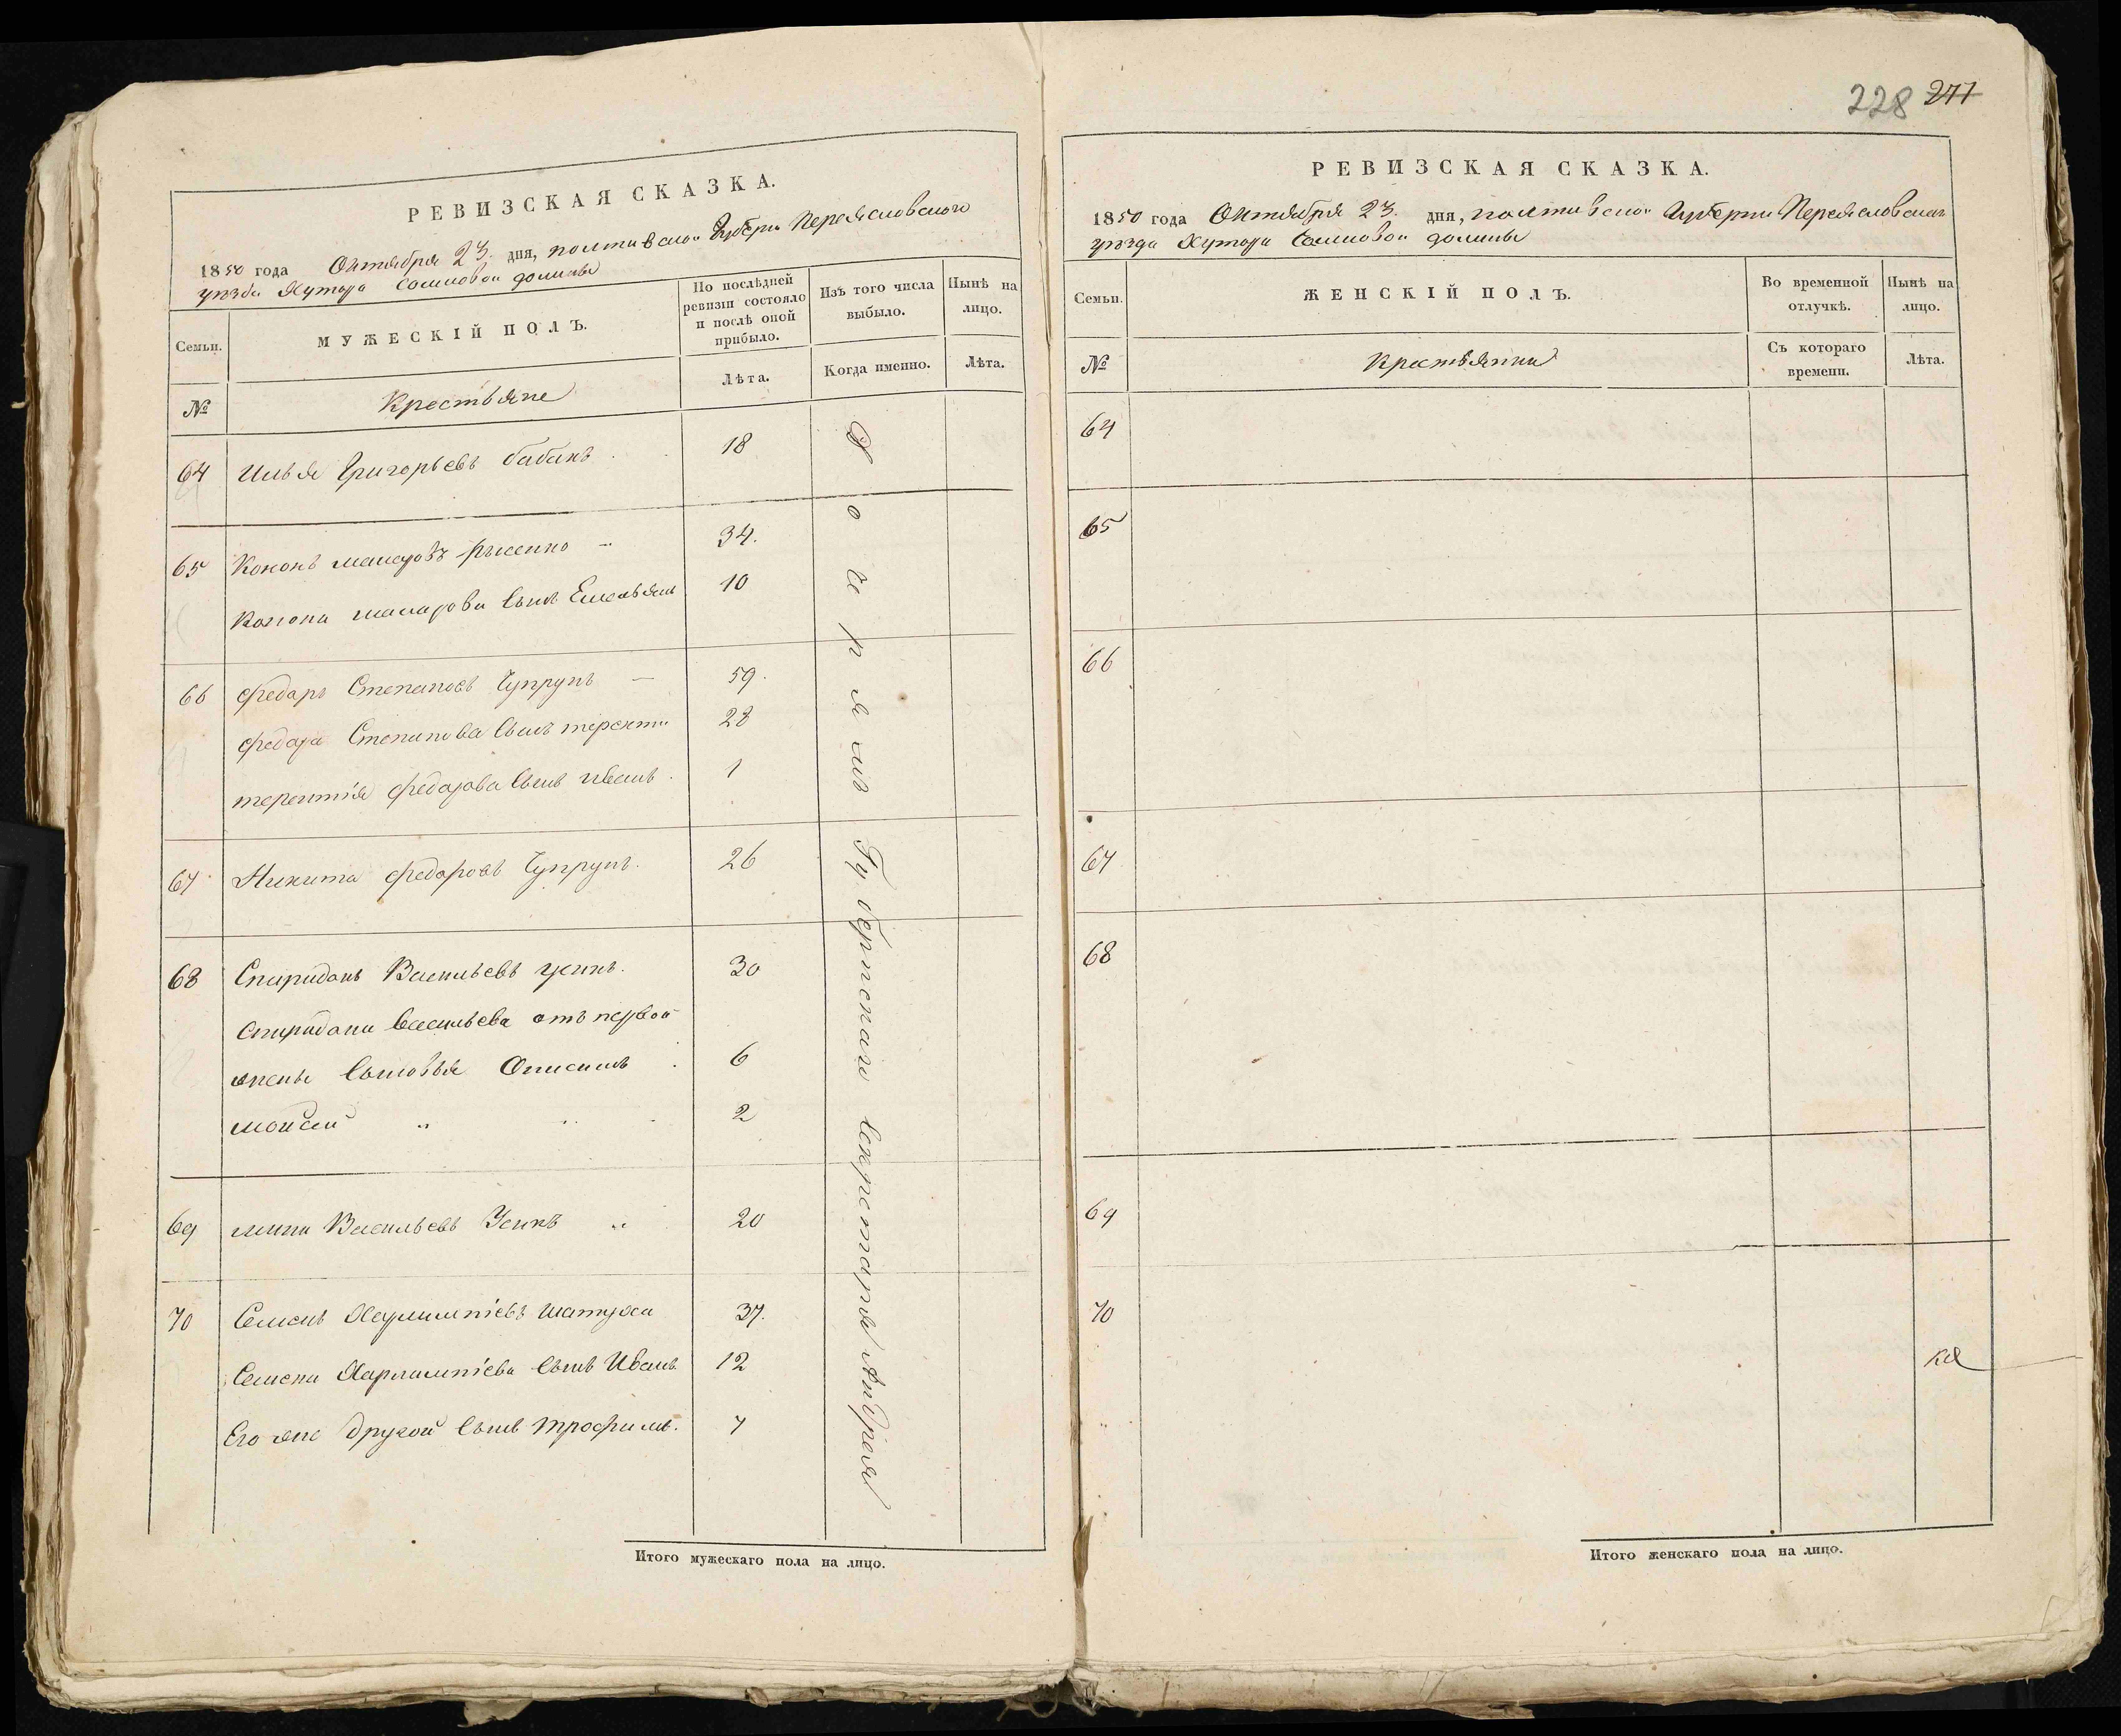 228 277
РЕВИЗСКАЯ СКАЗКА.
1850 года Октября 23. дня, полтавской Губерни Переясловского
уезда Хутора Сомиовой долины
Семьи.
МУЖЕСКІЙ ПОЛЪ.
По послѣдней ревизіи состояло и послѣ оной прибыло.
Изъ того числа выбыло.
Нынѣ на лицо.
№
Крестьяне
Лѣта.
Когда именно.
Лѣта.
64 Илья Григорьевъ бабакъ 18
65 Кононъ макаровъ 34.
Конона макарова сынъ Емельянъ 10
66 федаръ Степановъ Чупрунъ 59.
федара Степанова сынъ терентий 28
терентія федарова сынъ иванъ 1
67 Никита федаровъ Чупрунъ 26
68 Спиридонъ Васильевъ усикъ. 30
Спиридона васильева отъ первой
жены сыновья Онисимъ 6
мойсей „ „ 2
69 мина Васильевъ Усикъ „ 20
70 Семенъ Харлампіевъ шатуха 37.
Семена Харлампіева сынъ Иванъ 12
Его же другой сынъ трофимъ. 7
Губернскаго секретаря Андрея
Итого мужескаго пола на лицо.
РЕВИЗСКАЯ СКАЗКА.
1850 года Октября 23. дня, полтавской Губерни Переясловскаго
уезда Хутора Сомиовой долины
Семьи.
ЖЕНСКІЙ ПОЛЪ.
Во временной отлучкѣ.
Нынѣ на лицо.
№
Крестьянки
Съ котораго времени.
Лѣта.
64
65
66
67
68
69
70
ка
Итого женскаго пола на лицо.